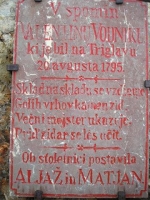 V spomin
VALENTINU VODNIKU
ki je bil na Triglavu
20. avgusta 1795.
Sklad na skladu se vzdiguje
Golih vrhov kamen zid.
Večni mojster ukazuje:
Prid' zidar se les učit.
Ob stoletnici postavila
ALJAŽ in MATJAN